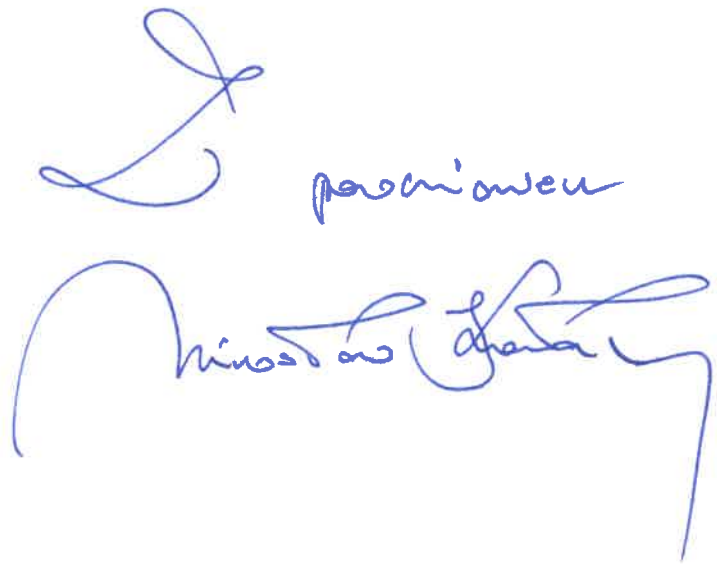 Z poważaniem
Mirosław